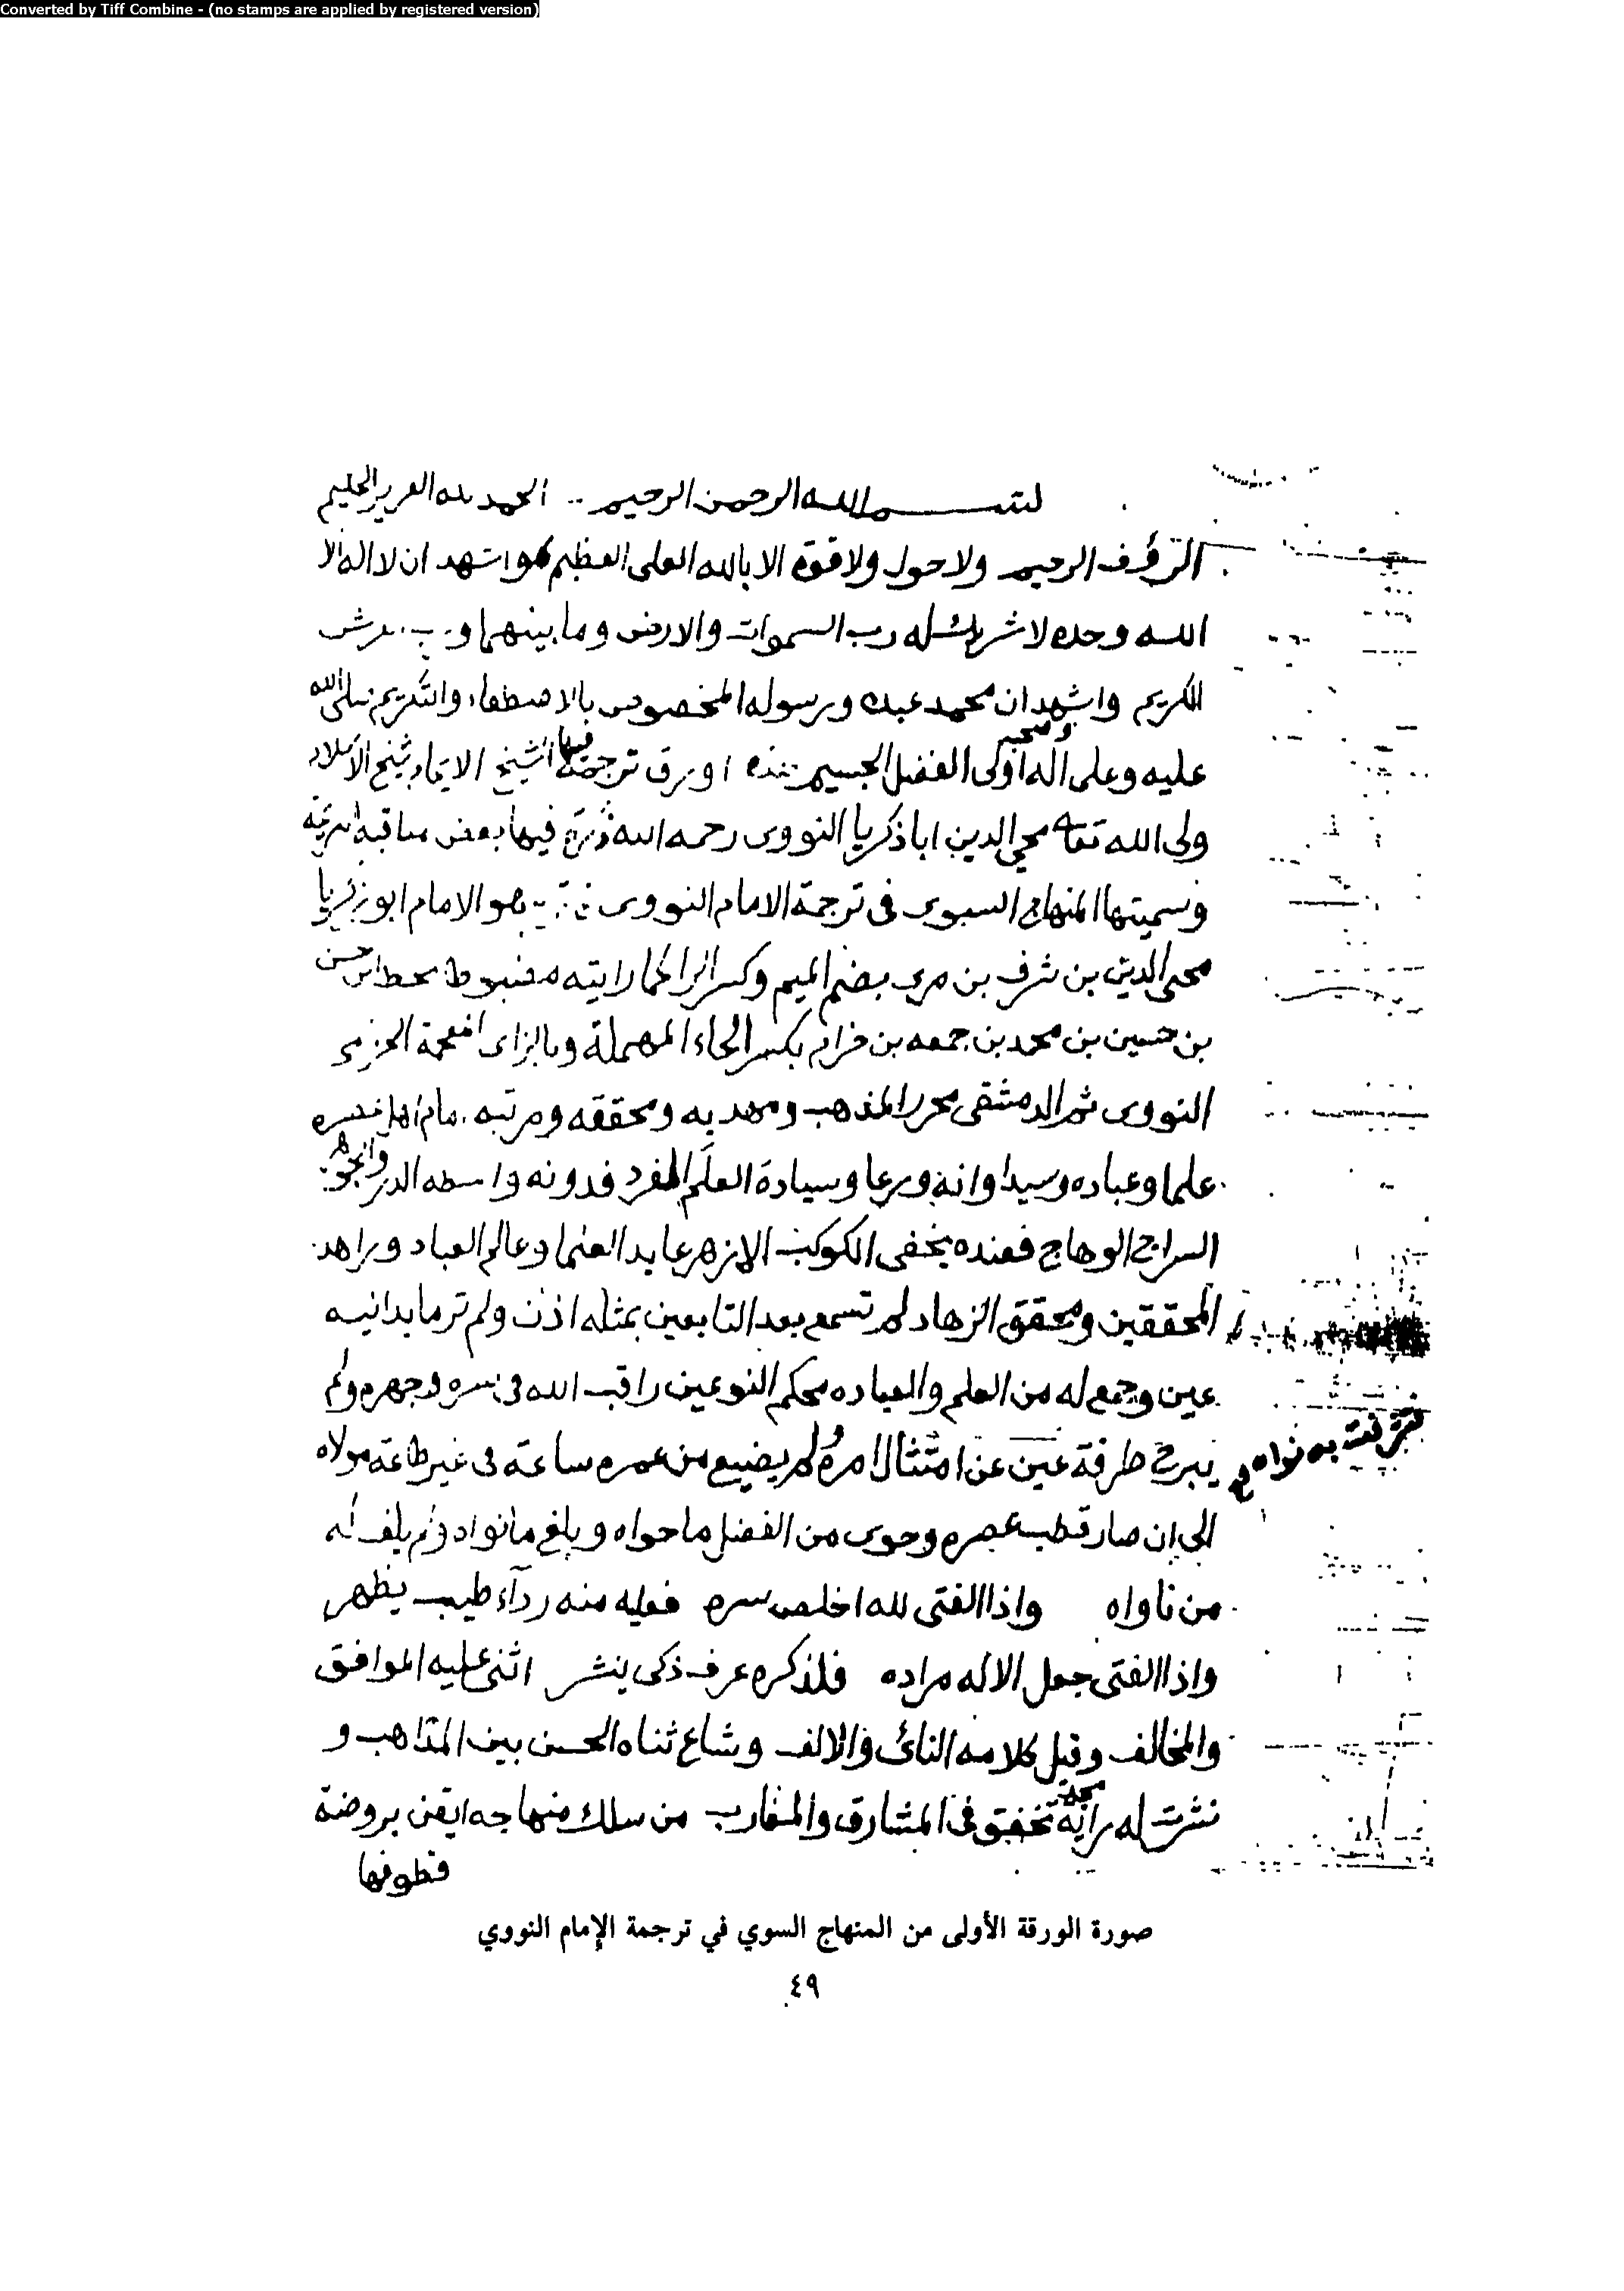 Converted by Tiff Combine - (no stamps are applied by registered version)
بسم الله الرحمن الرحيم .. الحمد لله العزيز الحليم
الرؤف الرحيم ولا حول ولا قوة الا بالله العلى العظيم واشهد ان لا اله الا
الله وحده لا شريك له رب السموات والارض وما بينهما
الكريم واشهد ان محمد عبده ورسوله المخصوص بالاصطفاء والتكريم صلى الله
عليه وعلى اله وصحبه اولى الفضل الجسيم هذه اوراق ترجمت فيها الشيخ الامام شيخ الاسلام
ولى الله تعا محي الدين ابا ذكريا النووى رحمه الله فيها بعض مناقبه
وسميتها المنهاج السوى فى ترجمة الامام النووى هو الامام ابو زكريا
محيى الدين بن شرف بن مرى بضم الميم وكسر الرا كما رايته مضبوطا بخط ابن حسن
بن حسين بن محمد بن جمعه بن حزام بكسر الحاء المهملة وبالزاى المعجمة الحزمى
النووى ثم الدمشقى محرر المذهب ومهذبه ومحققه ومرتبه امام اهل عصره
علما وعباده وسيد اوانه ورعا وسيادة العلم المفرد فدونه واسطه الدر والجوهر
السراج الوهاج فعنده يخفى الكوكب الازهر عابد العلما وعالم العباد وزاهد
المحققين ومحقق الزهاد لم تسمع بعد التابعين بمثله اذن ولم تر ما يدانيه
عين وجمع له من العلم والعباده محكم النوعين راقب الله فى سره وجهره ولم
يبرح طرفة عين عن امتثال امره ولم يضيع من عمره ساعة فى غير طاعة مولاه
الى ان صار قطب عصره وحوى من الفضل ما حواه وبلغ ما نواه
تشرفت به نواه و
ولم يلف له
من ناواه واذا الفتى لله اخلص سره فعليه منه رداء طيب يظهر
واذا الفتى جعل الاله مراده فلذكره عرف ذكى ينشر اثنى عليه الموافق
والمخالف وقبل كلامه النائ والالف وشاع ثناه الحسن بين المذاهب و
نشرت له راية مجد تخفق فى المشارق والمغارب من سلك منهاجه ايقن بروضة
قطوفها
صورة الورقة الأولى من المنهاج السوي في ترجمة الإمام النووي
٤٩